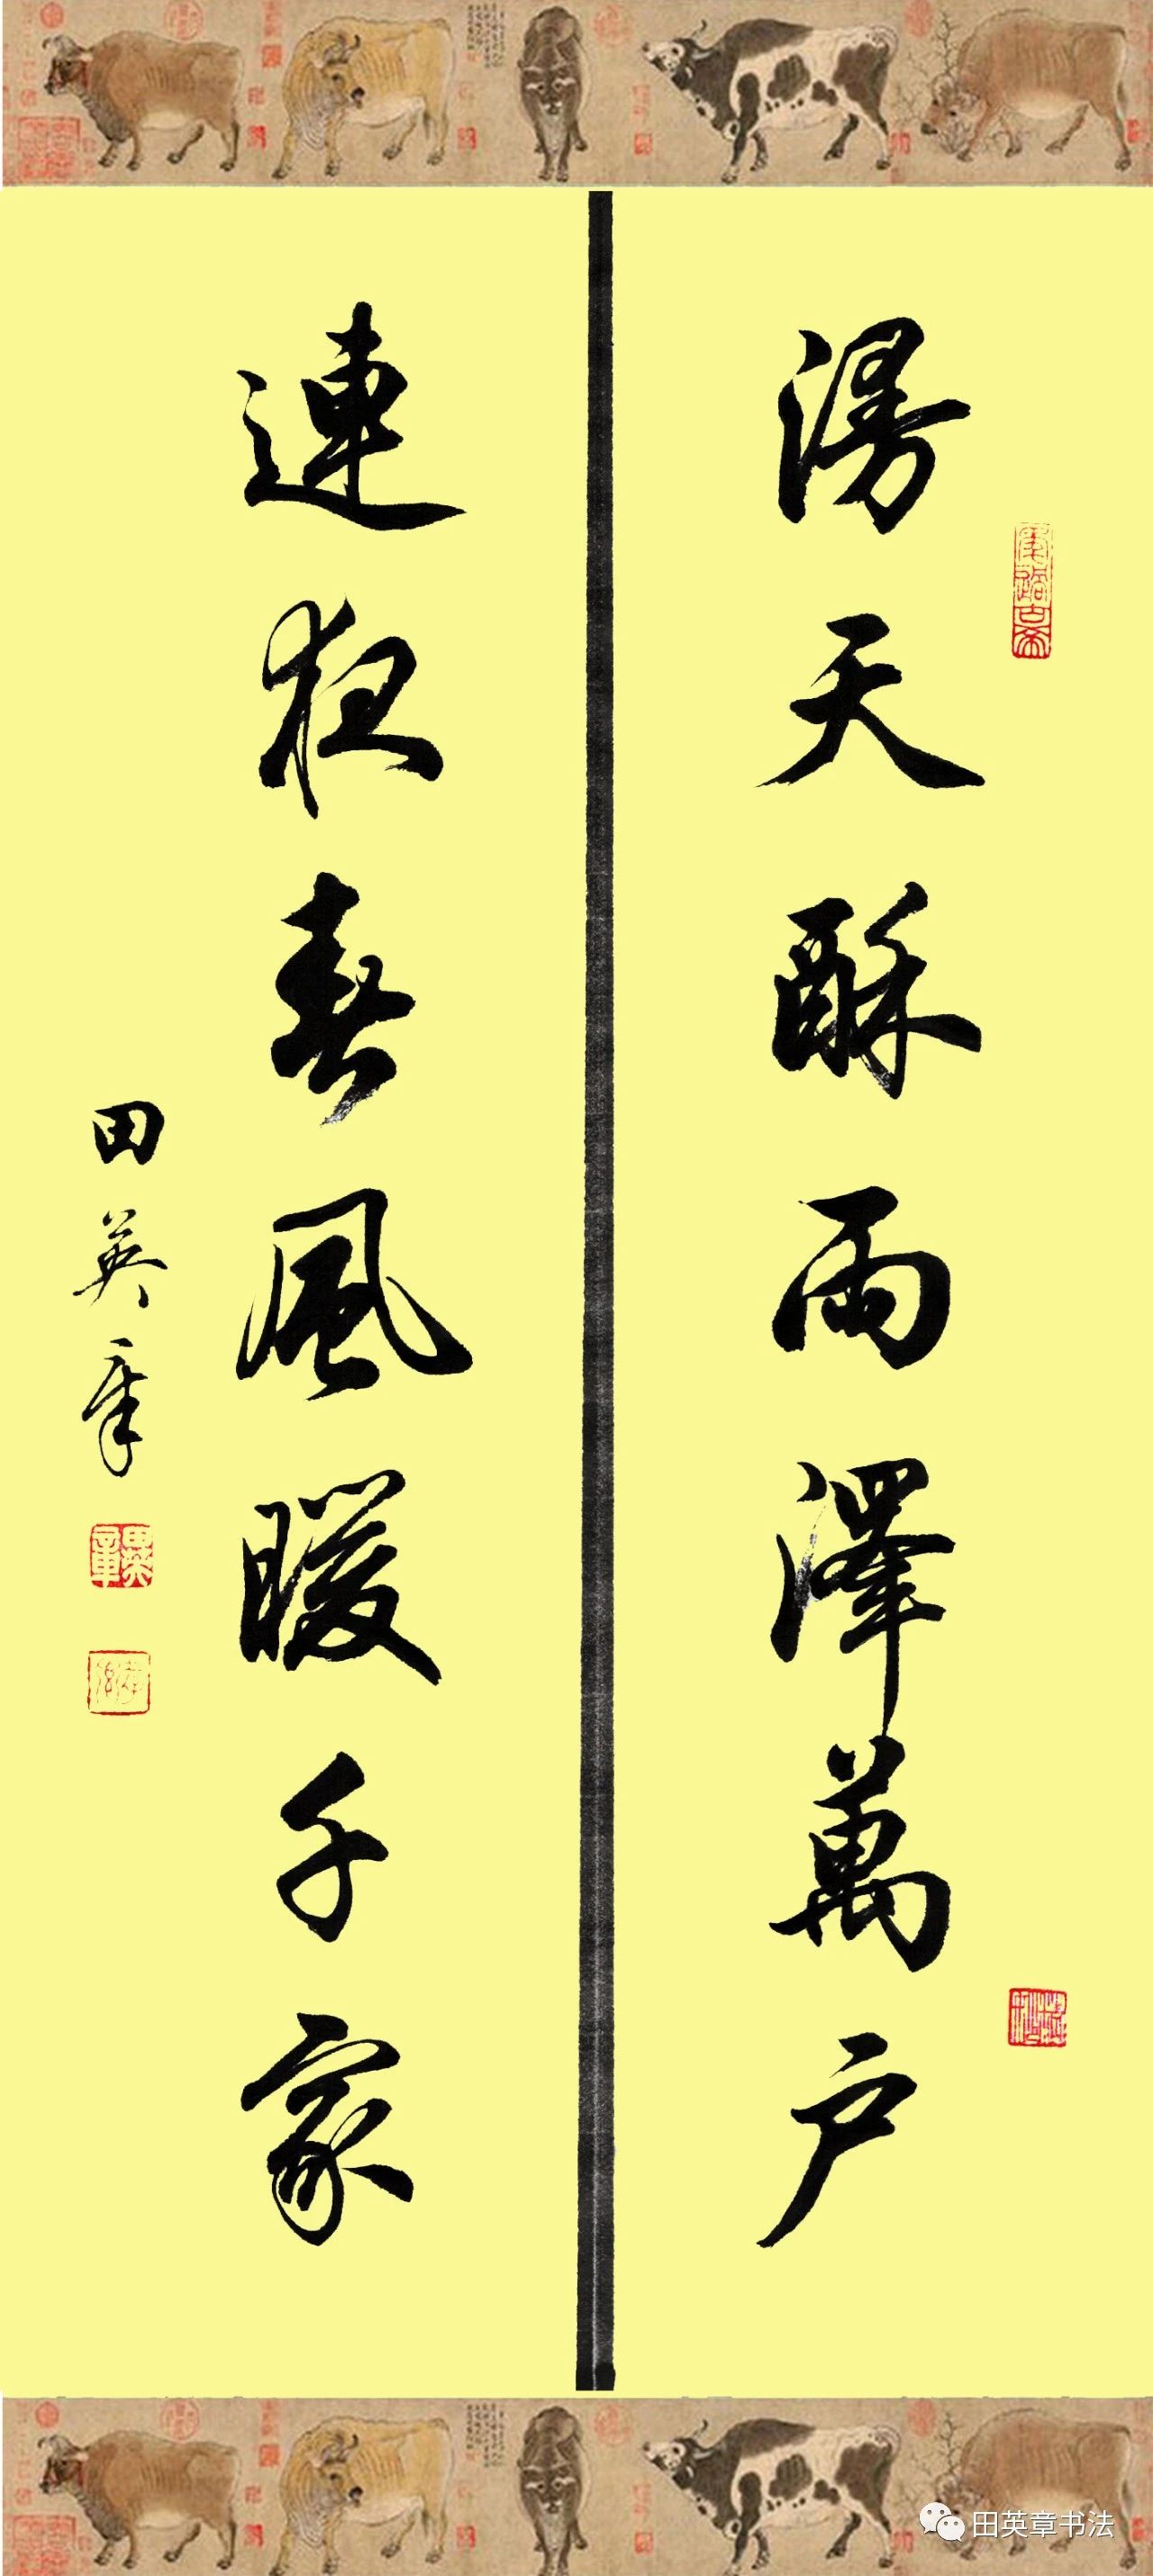 漫天酥雨澤萬户
連夜春風暖千家
田英章
田英章书法